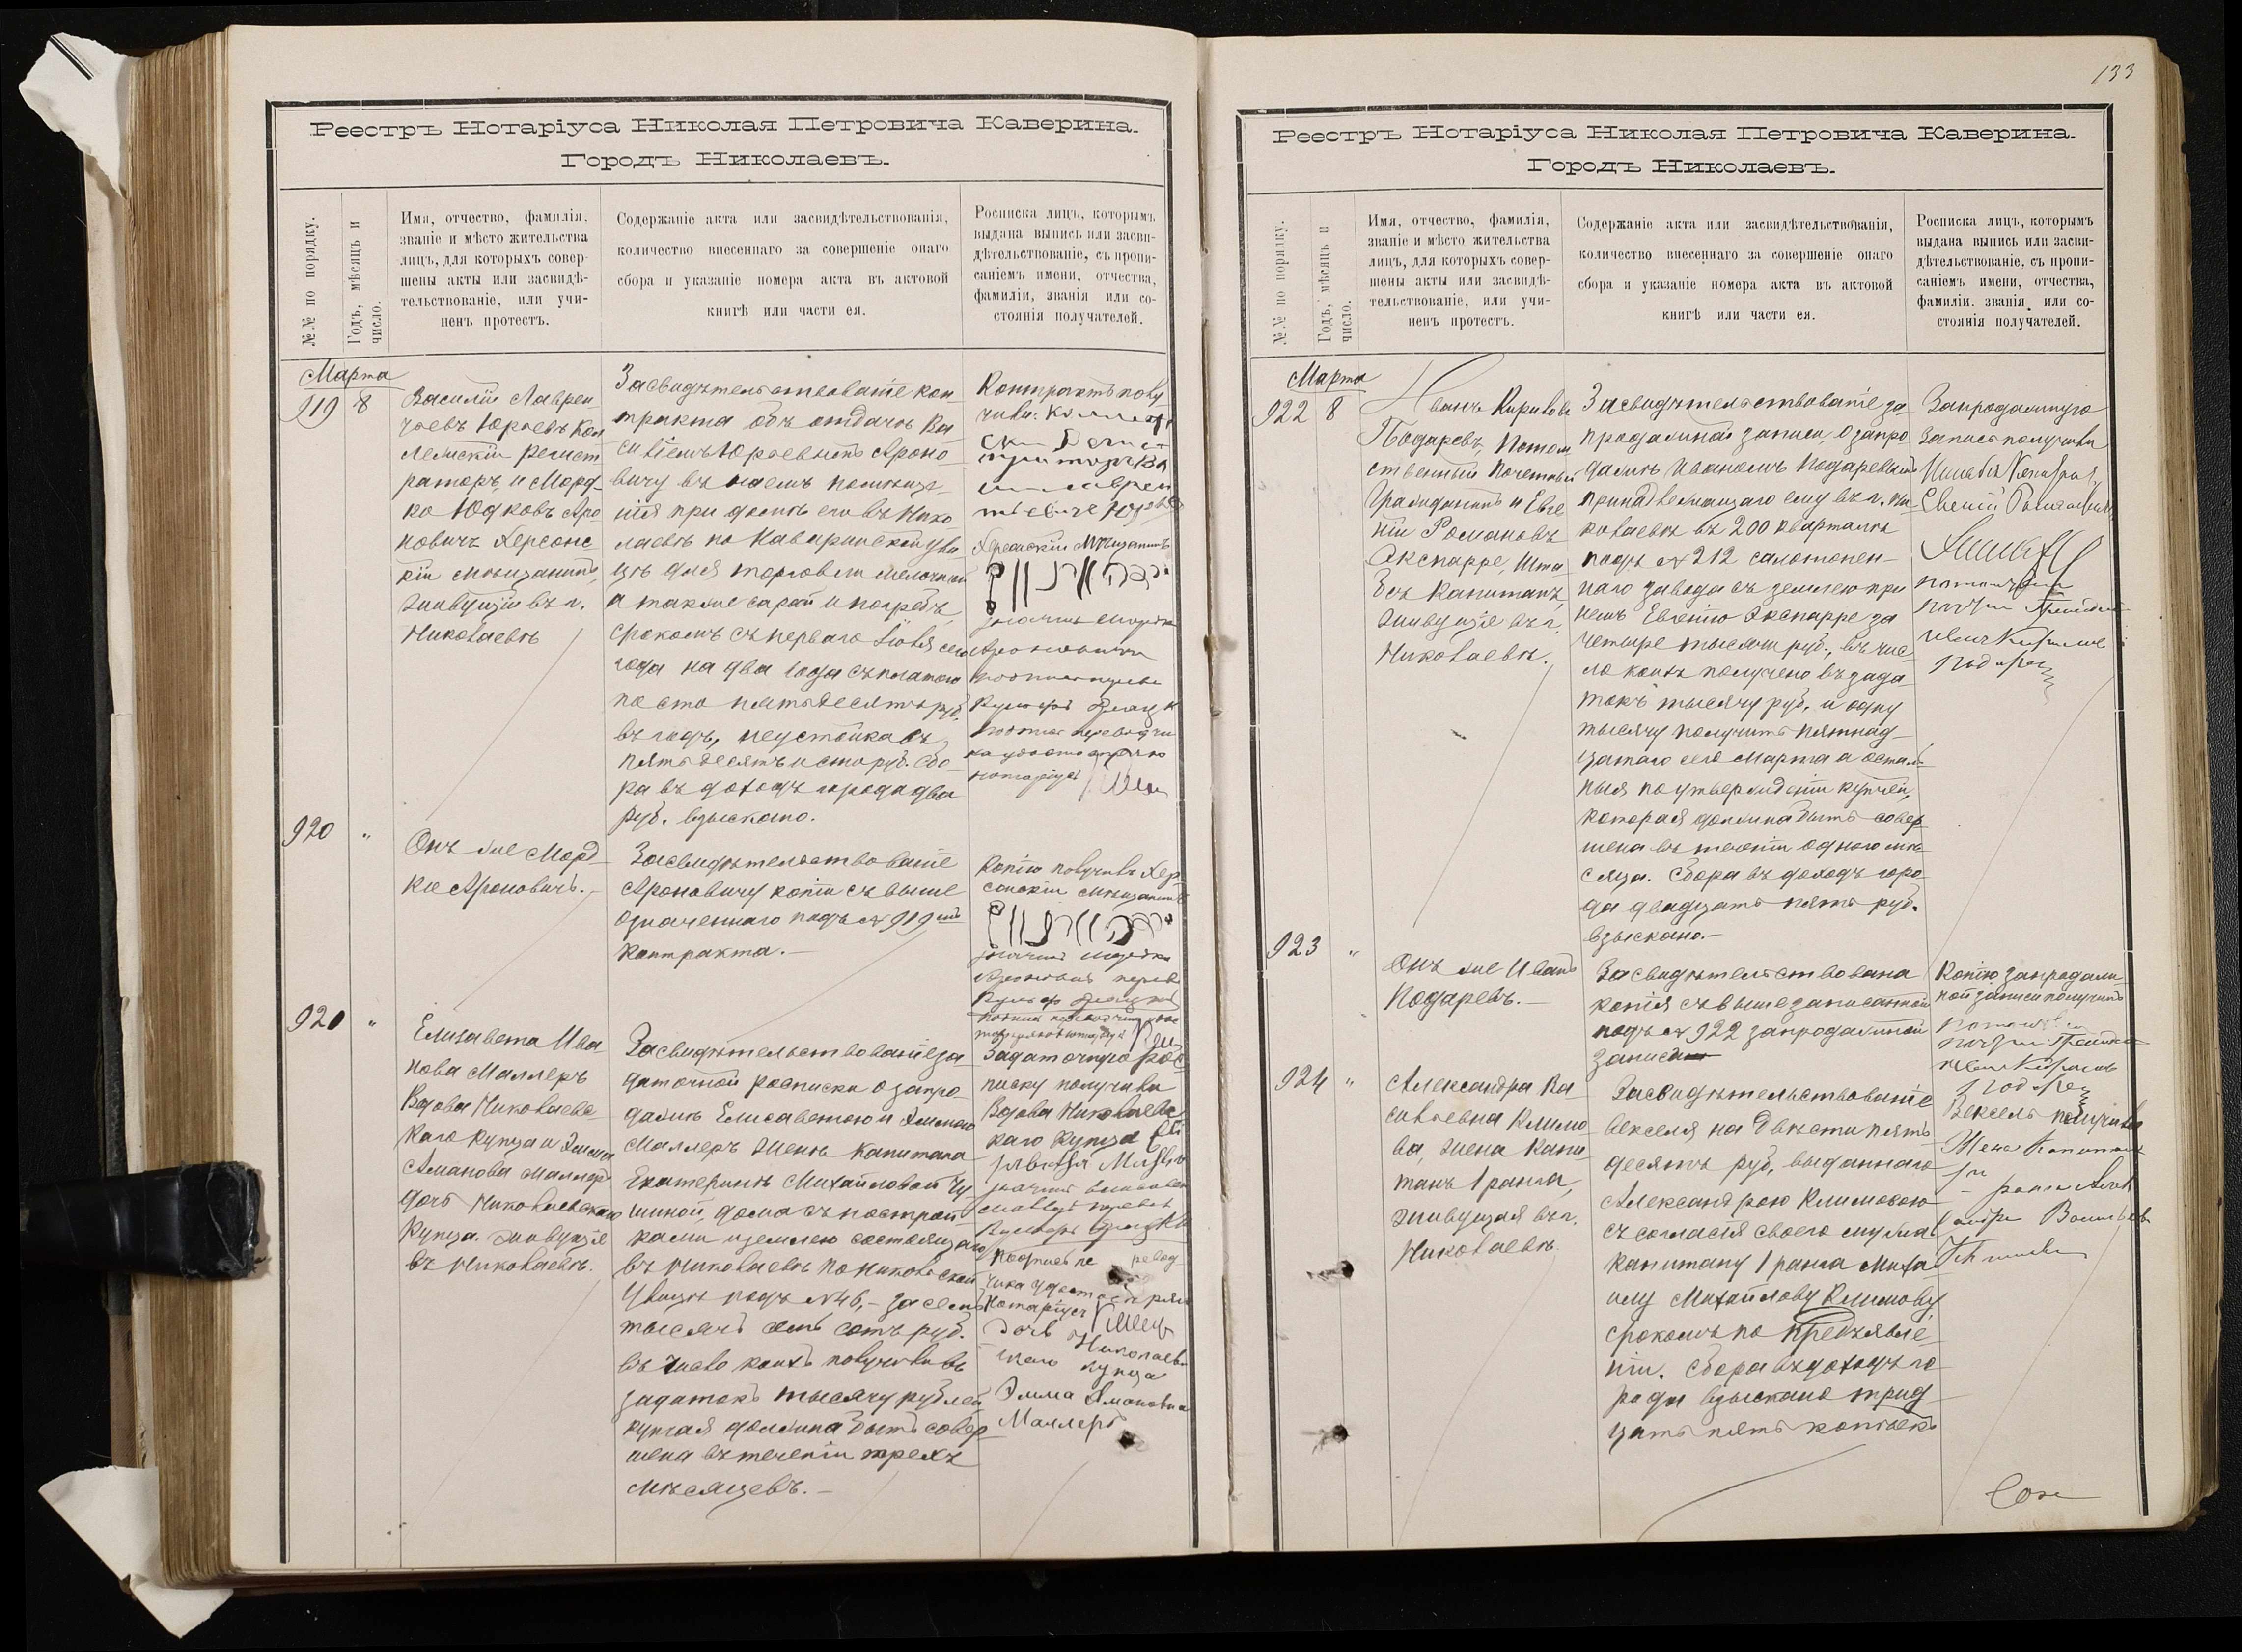 Реестръ Нотаріуса Николая Петровича Каверина.
Городъ Николаевъ.
№№ по порядку.
Годъ, мѣсяцъ и
число.
Имя, отчество, фамилія,
званіе и мѣсто жительства
лицъ, для которыхъ совер-
шены акты или засвидѣ-
тельствованіе, или учи-
ненъ протестъ.
Содержаніе акта или засвидѣтельствованія,
количество внесеннаго за совершеніе онаго
сбора и указаніе номера акта въ актовой
книгѣ или части ея.
Росписка лицъ, которымъ
выдана выпись или засви-
дѣтельствованіе, съ пропи-
саніемъ имени, отчества,
фамиліи, званія или со-
стоянія получателей.
Марта
919 8
Василій Лаврен
тьевъ Юрьевъ Кол
лежскій регист
раторъ, и Морд-
ко Юдковъ Аро
новичъ Херсонс
кій мѣщанинъ,
живущіе въ г.
Николаевѣ
Засвидѣтельствованіе кон
тракта объ отдачѣ Ва
силіемъ Юрьевымъ Ароно-
вичу въ наемъ помѣще-
нія при домѣ его въ Нико-
лаевѣ по
цѣ для торговли
а также сарай и погребъ,
срокомъ съ перваго Іюля сего
года на два года съ платою
по сто пятьдесятъ руб.
въ годъ, неустойка въ
пятьдесятъ и сто руб. Сбо-
ра въ доходъ города два
руб. взыскано.
Контрактъ полу
чили:
Херсонскій Мѣщанинъ
значитъ Мордко
Ароновичъ
нотаріусъ
920 "
Онъ же Морд-
ко Ароновичъ.-
Засвидѣтельствованіе
Ароновичу копіи съ выше
означеннаго подъ № 919мъ
контракта.-
Копію получилъ Хер-
сонскій мѣщанинъ
значитъ Мордко
920 "
Елизавета Ива
нова Маллеръ
Вдова Николаевс
каго купца и Эмма
Аманова Маллеръ
дочь Николаевскаго
купца. живущіе
въ Николаевѣ.
Засвидѣтельствованіе за
даточной росписки о запро-
дажѣ Елисаветою и Эммою
Маллеръ женѣ капитана
Екатеринѣ Михайловой Чу
шиной, дома съ построй
ками и землею состоящаго
въ Николаевѣ по Никольской
улицѣ подъ №46,- за семь
тысячъ семь сотъ руб.
въ число коихъ получили въ
задатокъ тысячу рублей
купчая должна быть совер
шена въ теченіи трехъ
мѣсяцевъ.-
Задаточную рос
писку получили
Вдова Николаевс
каго купца
Нотаріусъ
Дочь Николаев-
скаго купца
Эмма Амановна
Маллеръ
133
Реестръ Нотаріуса Николая Петровича Каверина.
Городъ Николаевъ.
№№ по порядку.
Годъ, мѣсяцъ и
число.
Имя, отчество, фамилія,
званіе и мѣсто жительства
лицъ, для которыхъ совер-
шены акты или засвидѣ-
тельствованіе, или учи-
ненъ протестъ.
Содержаніе акта или засвидѣтельствованія,
количество внесеннаго за совершеніе онаго
сбора и указаніе номера акта въ актовой
книгѣ или части ея.
Росписка лицъ, которымъ
выдана выпись или засви-
дѣтельствованіе, съ пропи-
саніемъ имени, отчества,
фамиліи, званія или со-
стоянія получателей.
Марта
922 8
Иванъ Кириловъ
Подаревъ, Потом
ственный почетный
гражданинъ и Евге
ній Романовъ
Экспарре, Шта
бсъ Капитанъ,
живущіе въ г.
Николаевѣ.
Засвидѣтельствованіе за
продажной записи, о запро
дажѣ Иваномъ Подаревымъ
принадлежащаго ему въ г. Ни-
колаевѣ въ 200 кварталѣ
подъ № 212 салотопен-
наго завода съ землею при
немъ Евгенію Экспарре за
четыре тысячи руб., въ чис
ло коихъ получено въ зада
токъ тысячу руб. и одну
тысячу получить пятнад
цатаго сего Марта а осталь
ныя по утвержденіи купчей,
которая должна быть совер
шена въ теченіи одного мѣ
сяца. Сбора въ доходъ горо-
да двадцать пять руб.
взыскано.-
Запродажную
запись получили
923 "
Онъ же Иванъ
Подаревъ.-
Засвидѣтельствована
копія съ вышезаписанной
подъ № 922 запродажной
записи
Копію запродаж-
ной записи получилъ
924 "
Александра Ва
сильевна Климо
ва, жена Капи
танъ 1 ранга,
живущая въ г.
Николаевѣ
Засвидѣтельствованіе
векселя на двѣсти пять
десятъ руб, выданнаго
Александрою Климовою
съ согласія своего мужа
капитану 1 ранга Миха
илу Михайлову Климову
срокомъ по предъявле
ніи. Сбора въ доходъ го
рода взыскано трид
цать пять копѣекъ
Вексель получила
Жена Капитана